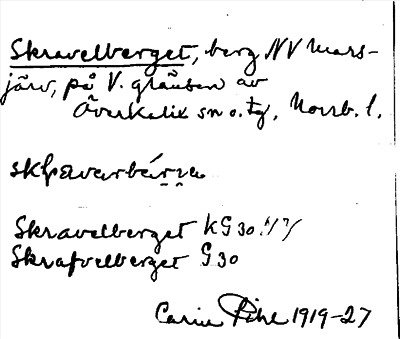 Skravelberget, berg NV Mars-
järv, på V. gränsen av
Överkalix sn o. tg, Norrb. l.
skravarbärra
Skravelberget KG 30
Skrafvelberget G 30
Carin Pihl 1919-27